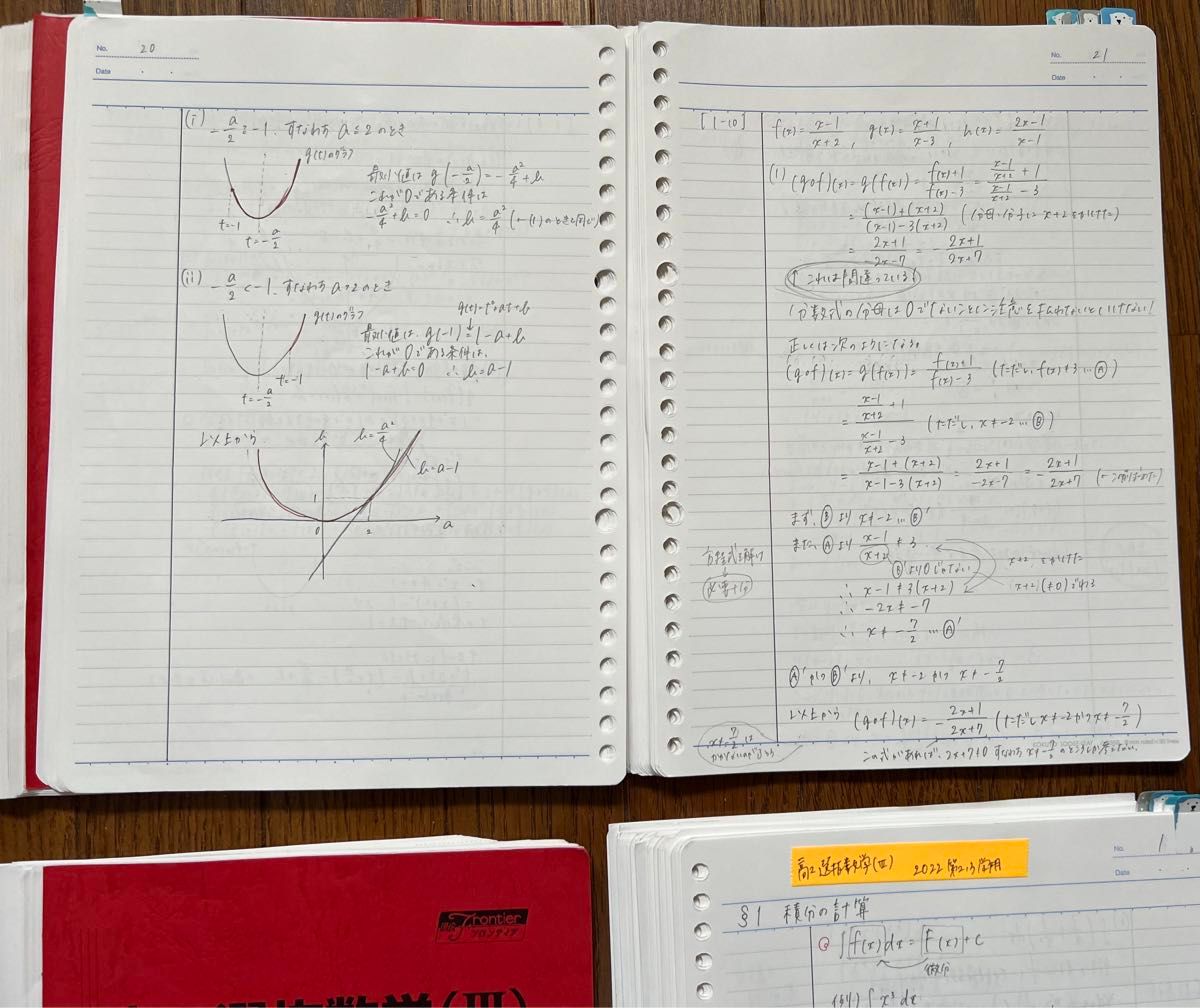 No. 20
Date
(i) -a/2 ≧ -1, すなわち a ≦ 2 のとき
g(t)のグラフ
最小値は g(-a/2) = -a²/4 + b
これが0である条件は
-a²/4 + b = 0 ∴ b = a²/4 (←(1)のときと同じ)
t=-1
t=-a/2
(ii) -a/2 < -1, すなわち a > 2 のとき
g(t)のグラフ
g(t)=t²+at+b
最小値は, g(-1) = 1-a+b
これが0である条件は,
1-a+b=0 ∴ b=a-1
t=-1
t=-a/2
以上から
b
b=a²/4
b=a-1
1
0
2
a
No. 21
Date
[1-10] f(x)= (x-1)/(x+2), g(x)= (x+1)/(x-3), h(x)= (2x-1)/(x-1)
(1) (g∘f)(x)=g(f(x))= (f(x)+1)/(f(x)-3) = ((x-1)/(x+2) + 1)/((x-1)/(x+2) - 3)
= ((x-1)+(x+2))/((x-1)-3(x+2)) (分母・分子に x+2 をかけた)
= (2x+1)/(-2x-7) = -(2x+1)/(2x+7)
↑ これは間違っている!
分数式の分母は0でないことに注意を払わないといけない!
正しくは次のようになる。
(g∘f)(x)=g(f(x))= (f(x)+1)/(f(x)-3) (ただし, f(x)≠3 … Ⓐ)
= ((x-1)/(x+2) + 1)/((x-1)/(x+2) - 3) (ただし, x≠-2 … Ⓑ)
= (x-1+(x+2))/(x-1-3(x+2)) = (2x+1)/(-2x-7) = -(2x+1)/(2x+7)
まず, Ⓑより x≠-2 … Ⓑ'
また, Ⓐより (x-1)/(x+2) ≠ 3
Ⓑ'より0じゃない
方程式を解け
↓
∴ x-1≠3(x+2)
x+2 をかけた
x+2(≠0)でわる
∴ -2x≠-7
∴ x≠-7/2 … Ⓐ'
Ⓐ'かつⒷ'より, x≠-2 かつ x≠-7/2
以上から (g∘f)(x) = -(2x+1)/(2x+7) (ただし x≠-2 かつ x≠-7/2)
x≠-7/2 は
この式があれば, 2x+7≠0 すなわち x≠-7/2 のところしか考えない.
Frontier
フロンティア
選択数学(Ⅲ)
高2選択数学(Ⅲ) 2022 第2,3学期
No. 1
Date
§1 積分の計算
∫f(x)dx = F(x)+C
微分
(例) ∫x³dx